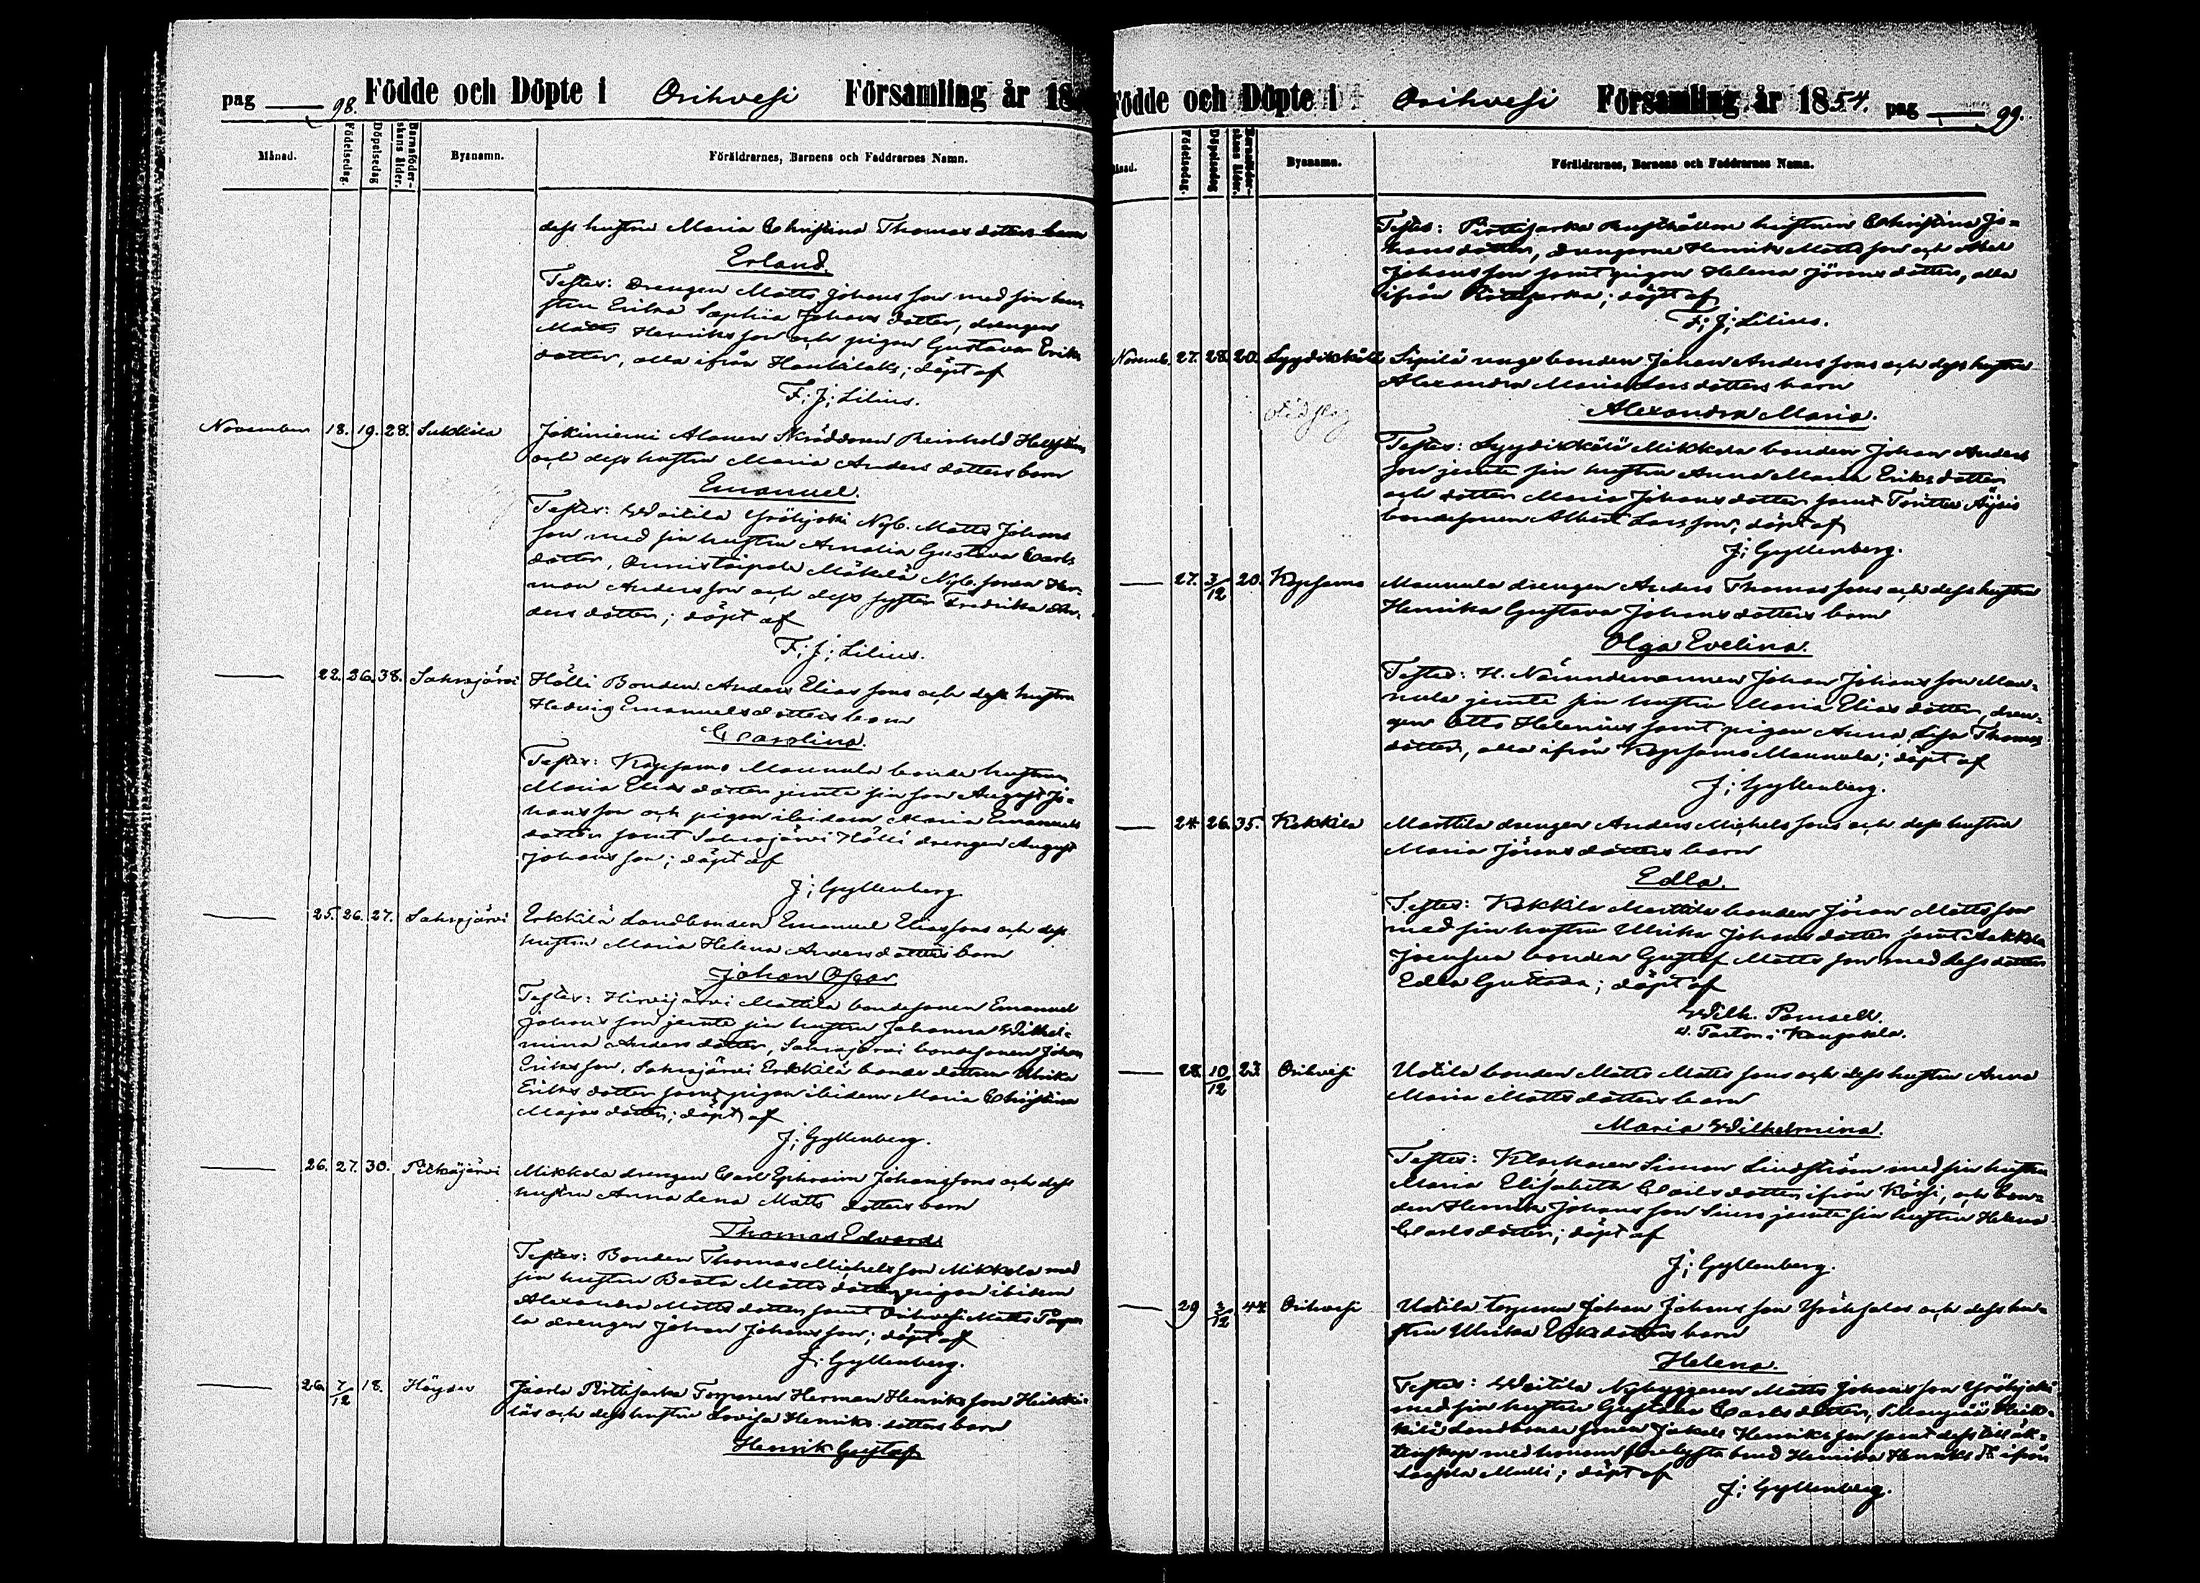 pag 98. Födde och Döpte i Orihvesi Församling år 18
Månad. Födelsedag. Döpelsedag Barnaföderskans ålder. Bysnamn. Föräldrarnes, Barnens och Faddrarnes Namn.
dess hustru Maria Christina Thomas dotters barn
Erland.
Testes: Drengen Matts Johans son med sin hu-
stru Erika Sophia Johans dotter, drengen
Matts Henriks son och pigan Gustava Eriks
dotter, alla ifrån; döpt af
F: J: Lilius.
November 18. 19. 28. Sukkila Alanen Skräddaren Reinhold
och dess hustru Maria Anders dotters barn
Emanuel.
Testes: Waitila Yröhjoki Nyb. Matts Johans
son med sin hustru Amalia Gustava Carls
dotter, Onnistaipale Mäkelä Nyb. sonen Her-
man Anders son och dess syster Fredrika An-
ders dotter; döpt af
F: J: Lilius.
— 22. 26. 38. Sahrajärvi Hölli Bonden Anders Elias sons och dess hustru
Hedvig Emanuels dotters barn
Carolina.
Testes: Kopsamo Maunula bonde hustrun
Maria Elias dotter jemte sin son August Jo-
hans son och pigan ibidem Maria Emanuels
dotter samt Sahrajärvi Hölli drengen August
Johans son; döpt af
J: Gyllenberg
— 25. 26. 27. Sahrajärvi Erkkilä Landbonden Emanuel Elias sons och dess
hustru Maria Helena Anders dotters barn
Johan Oscar
Testes: Hirvijärvi Mattila bondesonen Emanuel
Johans son jemte sin hustru Johanna Wilhel-
mina Anders dotter, Sahrajärvi bondesonen Johan
Eriks son, Sahrajärvi Erkkilä bonde dottren Ulrika
Eriks dotter samt pigan ibidem Maria Christina
Majas dotter; döpt af
J: Gyllenberg.
— 26. 27. 30. Pitkäjärvi Mikkola drengen Carl Ephraim Johans sons och dess
hustru Anna Lena Matts dotters barn
Thomas Edvard
Testes: Bonden Thomas Michels son Mikkola med
sin hustru Beata Matts dotter, pigan ibidem
Alexandra Matts dotter samt Orihvesi Matts
la drengen Johan Johans son; döpt af
J: Gyllenberg.
— 26. 7/12 18. Höydes Jaarla Pirttijarka Torparen Herman Henriks son Heikki-
läs och dess hustru Lovisa Henriks dotters barn
Henrik Gustaf
Födde och Döpte i Orihvesi Församling år 1854. pag 99.
Månad. Födelsedag. Döpelsedag Barnaföderskans ålder. Bysnamn. Föräldrarnes, Barnens och Faddrarnes Namn.
Testes: Pirttijarka Rusthållare hustrun Christina Jo-
hans dotter, drengarne Henrik Matts son och Abel
Johans son samt pigan Helena Jörans dotter, alla
ifrån; döpt af
F: J: Lilius.
Novemb. 27. 28. 20. Syydikkälä Sipilä unge bonden Johan Anders sons och dess hustru
Alexandra Maria Lars dotters barn
Alexandra Maria.
Testes: Syydikkälä Mikkola bonden Johan Anders
son jemte sin hustru Anna Maria Eriks dotter
och dotter Maria Johans dotter samt
bondesonen Albert Lars son; döpt af
J: Gyllenberg.
— 27. 3/12 20. Kopsamo Maunula drengen Anders Thomas sons och dess hustru
Henrika Gustava Johans dotters barn
Olga Evelina.
Testes: H. Nämndemannen Johan Johans son Mau-
nula jemte sin hustru Maria Elias dotter, dren-
gen Otto Helenius samt pigan Anna Lisa Thomas
dotter, alla ifrån Kopsamo Maunula; döpt af
J: Gyllenberg.
— 24 26. 35. Kekkila Marttila drengen Anders Michels sons och dess hustru
Maria Jörans dotters barn
Edla.
Testes: Kekkila Marttila bonden Jöran Matts son
med sin hustru Ulrika Johans dotter samt
bonden Gustaf Matts son med dess dotter
Edla Gustava; döpt af
Wilh.
v. Pastor i Kangasala.
— 28. 10/12 Orihvesi Uotila bonden Matts Matts sons och dess hustru Anna
Maria Matts dotters barn
Maria Wilhelmina.
Testes: Klockaren Simon Lindström med sin hustru
Maria Elisabeth Carls dotter ifrån, och bon-
den Henrik Johans son jemte sin hustru Helena
Carls dotter; döpt af
J: Gyllenberg.
— 29 3/12 44 Orihvesi Uotila torparen Johan Johans son Yröhjalas och dess hu-
stru Ulrika Eriks dotters barn
Helena.
Testes: Waitila Nybyggaren Matts Johans son Yröhjoki
med sin hustru Gustava Carls dotter, Heik-
kilä Landbonde sonen Jakob Henriks son samt dess
med honom förelysta brud Henrika Henriks Dr ifrån
Mulli; döpt af
J: Gyllenberg.